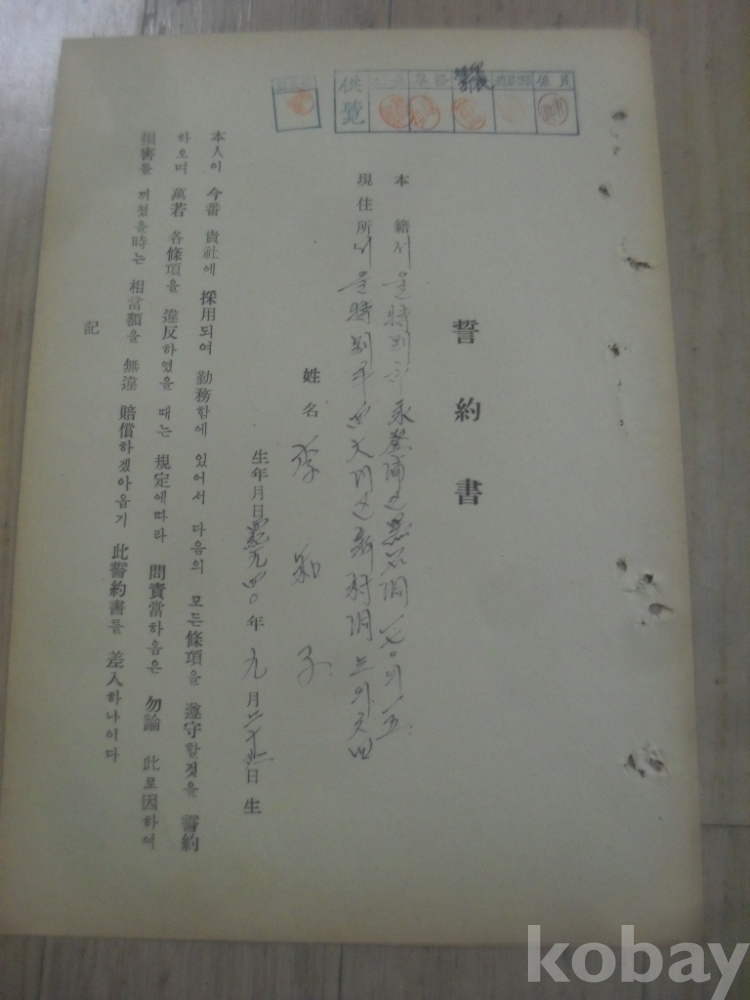 供覽
誓約書
本籍 서울特別市 永登浦区 黑石洞
現住所 서울特別市 西大門区 新村洞
姓名 李 和 子
生年月日 四〇年 九月 二十 日 生
本人이 今番 貴社에 採用되여 勤務함에 있어서 다음의 모든條項을 遵守할것을 誓約
하오며 萬若 各條項을 違反하였을 때는 規定에따라 問責當하옴은 勿論 此로因하여
損害를 끼쳤을時는 相當額을 無違 賠償하겠아옵기 此誓約書를 差入하나이다
記
kobay